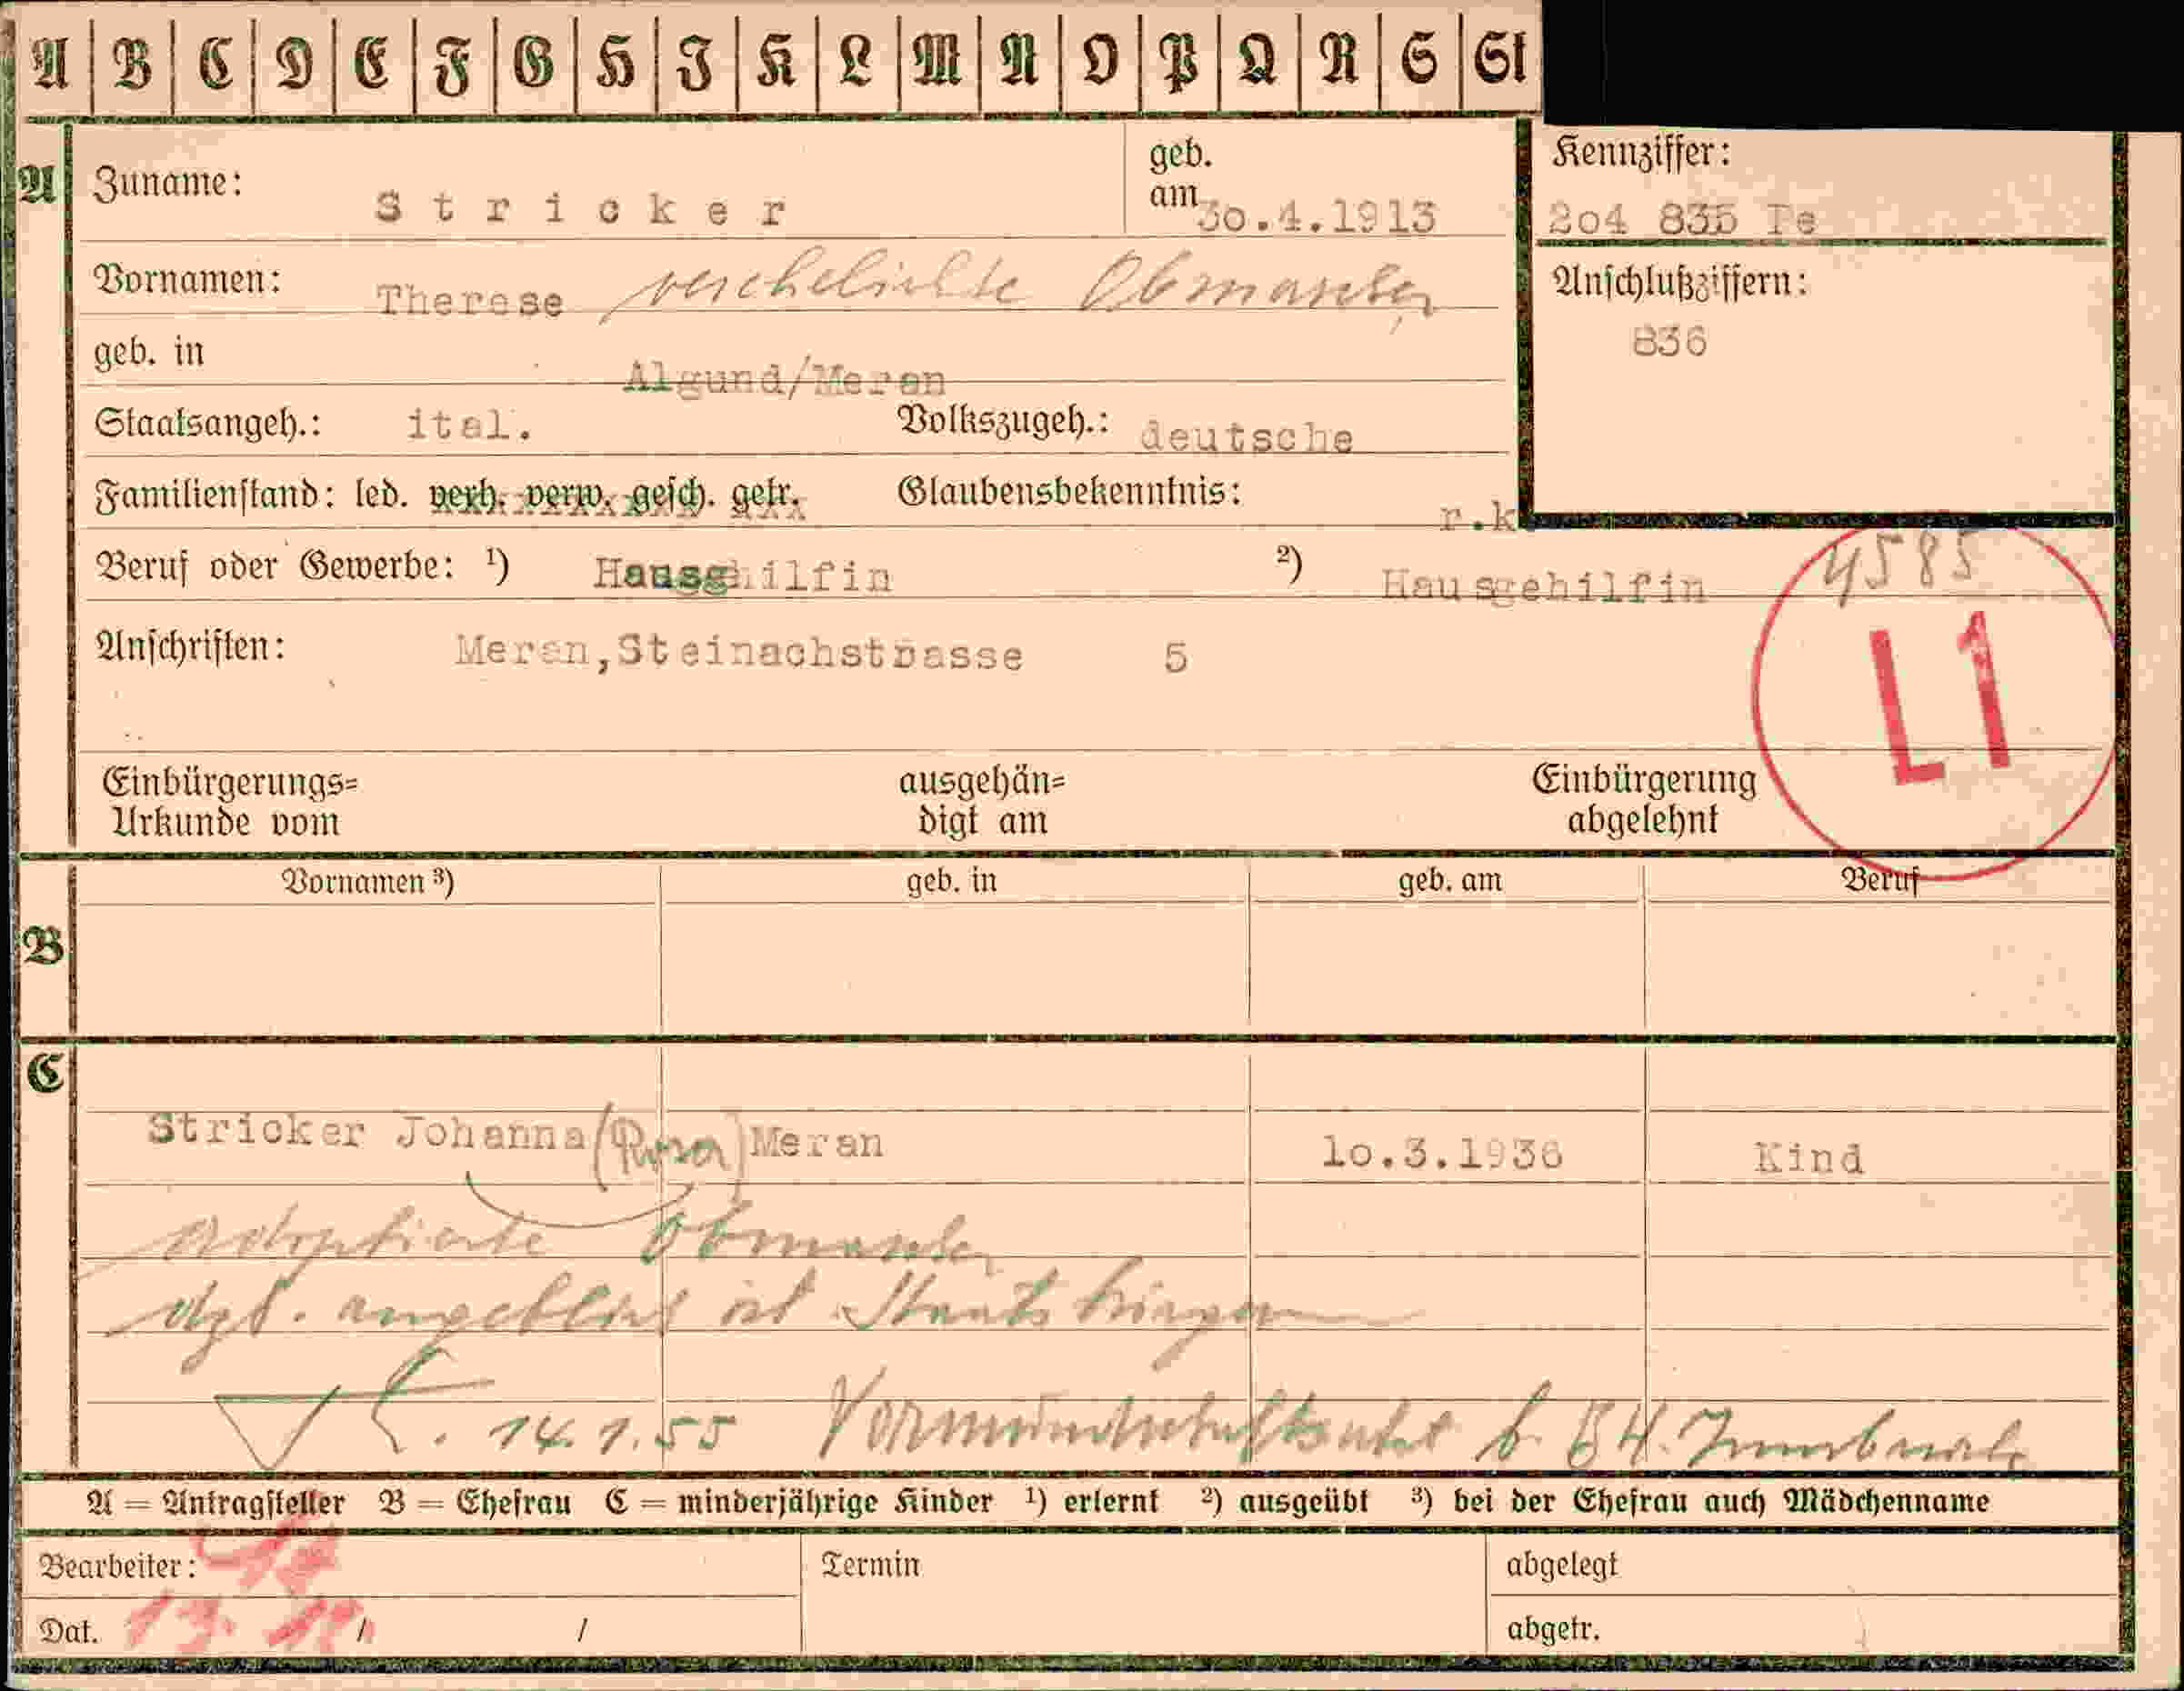 A B C D E F G H I K L M N O P Q R S St
A Zuname: Stricker geb. am 3o.4.1913
Kennziffer: 2o4 835 Pe
Vornamen: Therese verehelichte Obmascher
Anschlußziffern: 836
geb. in Algund/Meran
Staatsangeh.: ital. Volkszugeh.: deutsche
Familienstand: led. verh. verw. gesch. getr. Glaubensbekenntnis: r.k
Beruf oder Gewerbe: 1) Hausghilfin 2) Hausgehilfin
4585
Anschriften: Meran,Steinachstrasse 5
L1
Einbürgerungs= Urkunde vom ausgehän= digt am Einbürgerung abgelehnt
Vornamen 3) geb. in geb. am Beruf
B
C
Stricker Johanna (Rosa) Meran 1o.3.1936 Kind
adoptierte
dzt. angeblich öst. Staatsbürgerin
14.1.55 Vormundschaftsakt b. BH. Innsbruck
A = Antragsteller B = Ehefrau C = minderjährige Kinder 1) erlernt 2) ausgeübt 3) bei der Ehefrau auch Mädchenname
Bearbeiter: Termin abgelegt
Dat. / / abgetr.